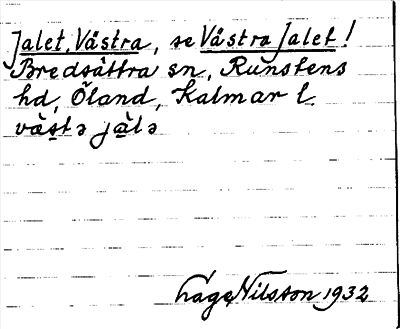 Jalet, Västra, se Västra Jalet!
Bredsättra sn, Runstens
hd, Öland, Kalmar l.
väs̲tə jå̲lə
Lage Nilsson 1932